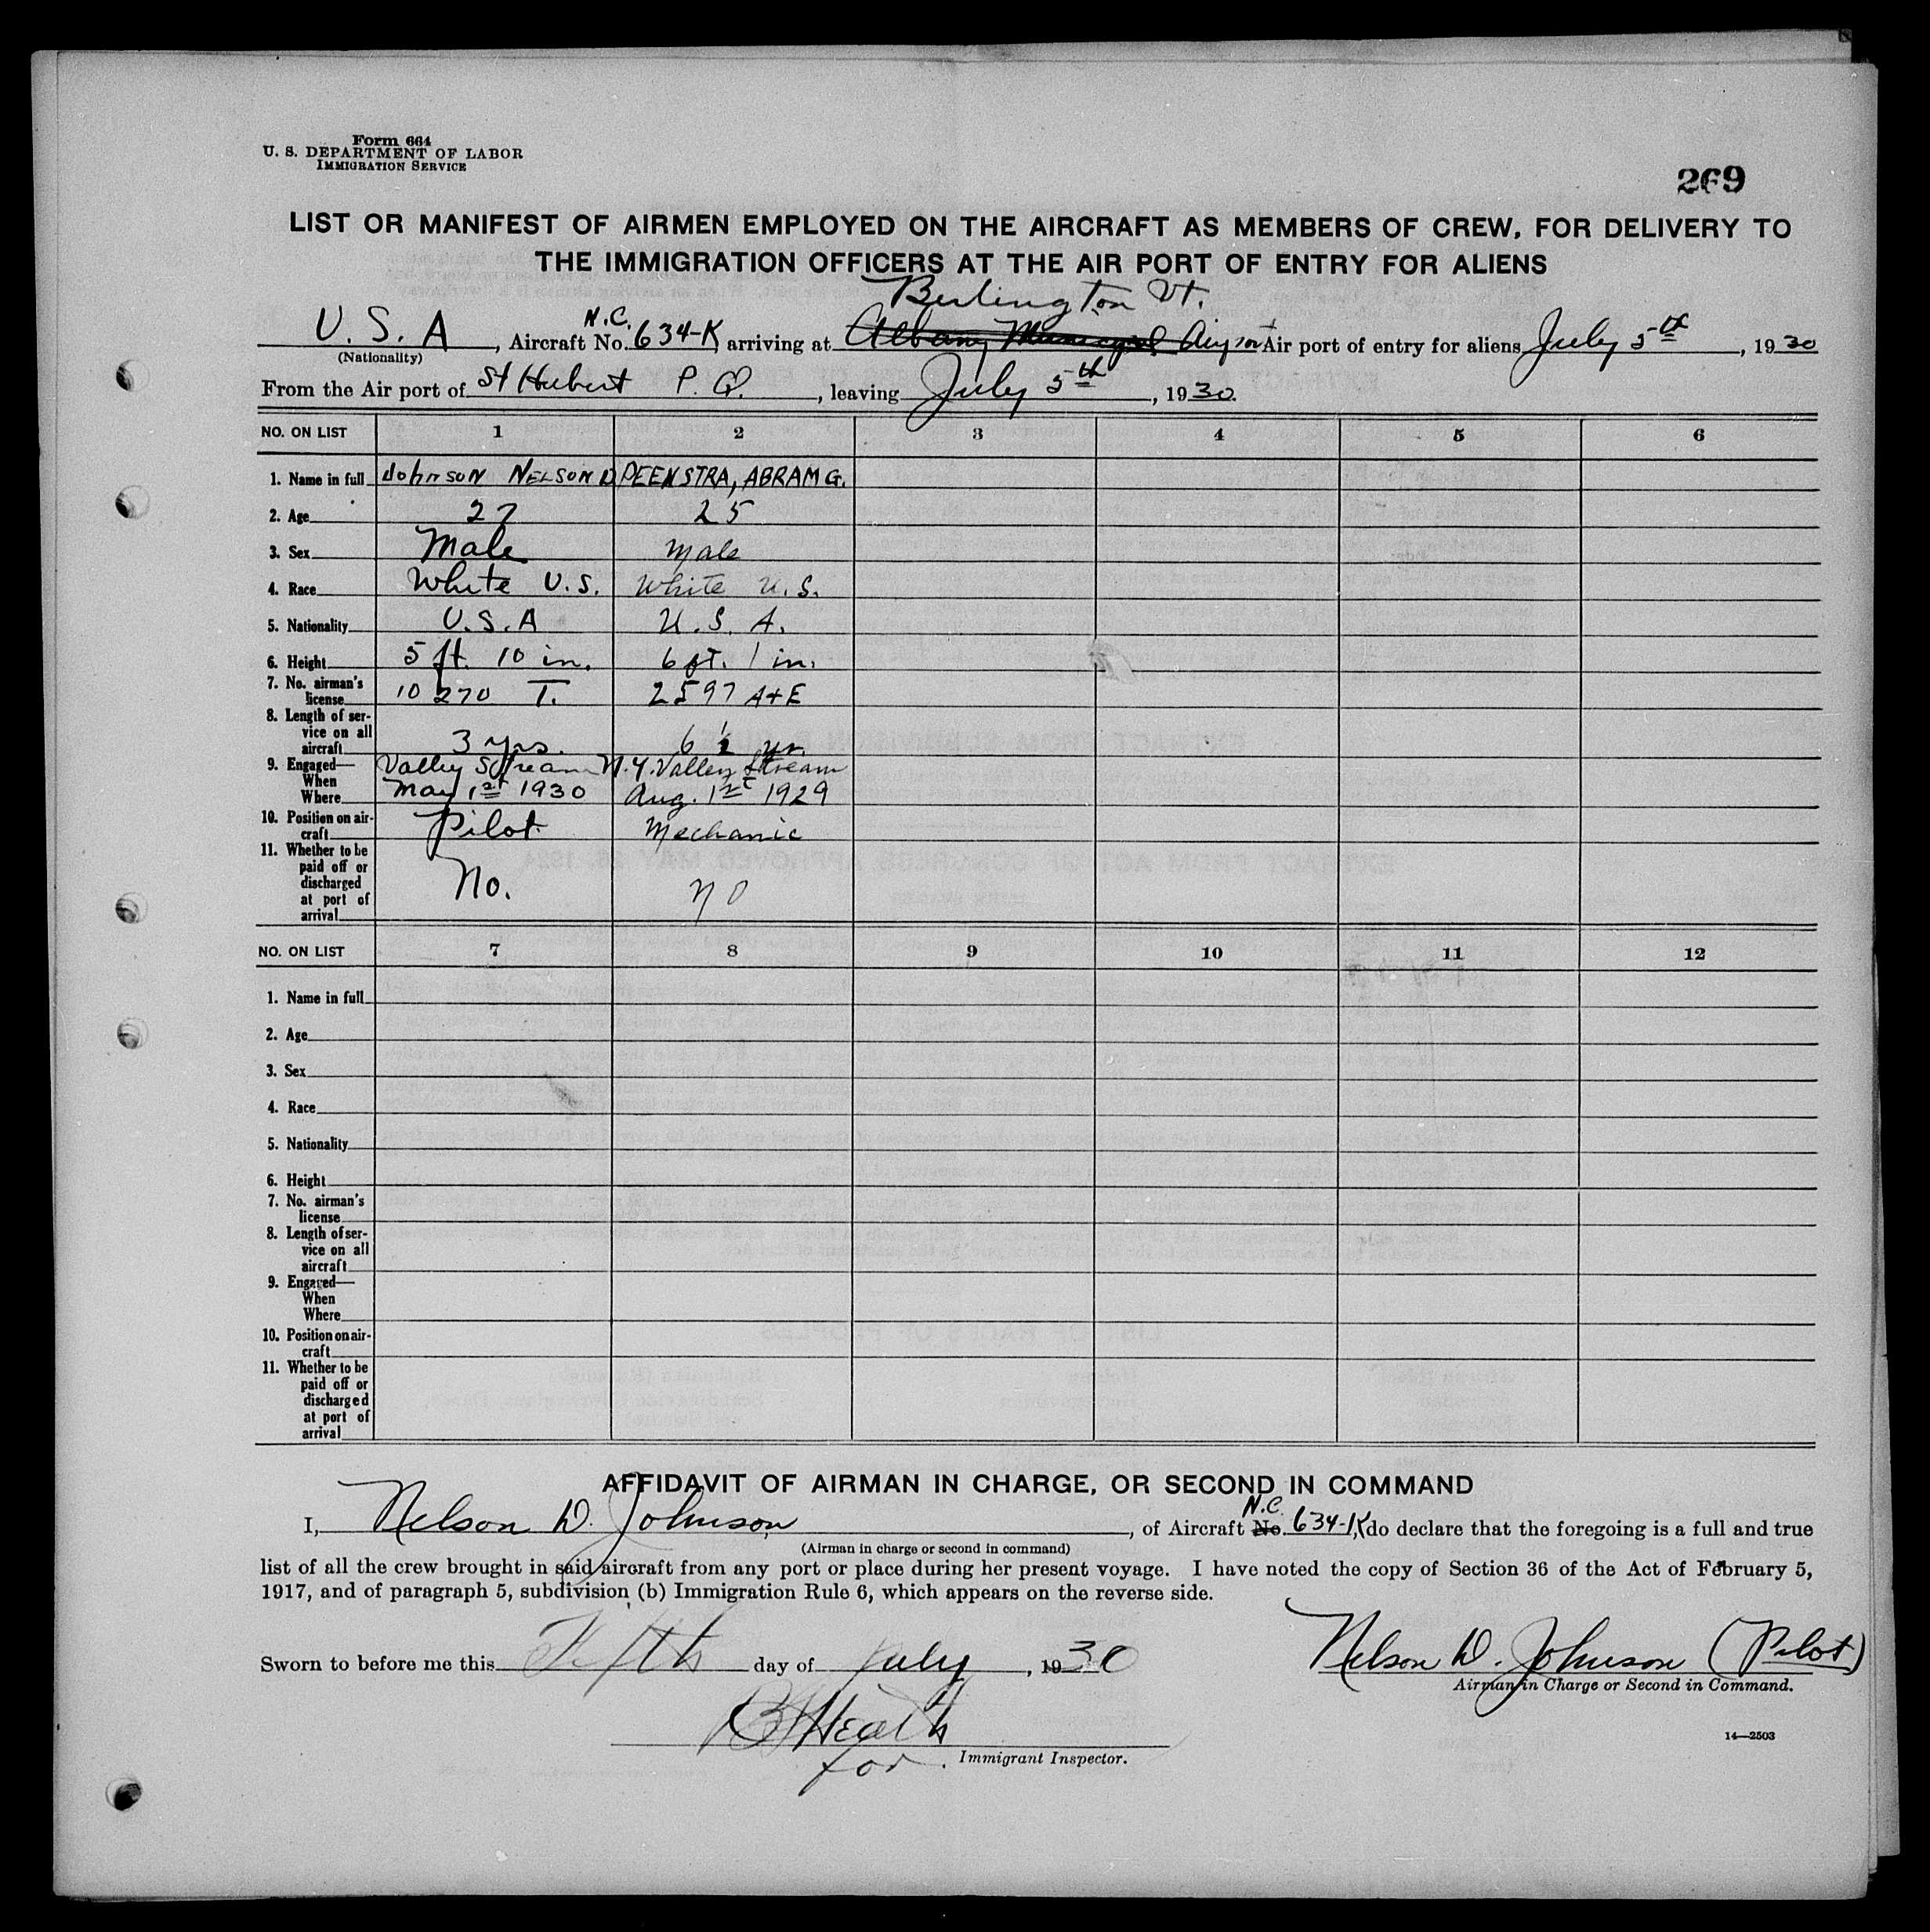 Form 664
U. S. DEPARTMENT OF LABOR
IMMIGRATION SERVICE
269
LIST OR MANIFEST OF AIRMEN EMPLOYED ON THE AIRCRAFT AS MEMBERS OF CREW, FOR DELIVERY TO
THE IMMIGRATION OFFICERS AT THE AIR PORT OF ENTRY FOR ALIENS
Burlington Vt.
U. S. A, Aircraft No. N.C. 634-K, arriving at Albany Municipal Airport Air port of entry for aliens July 5th, 1930
(Nationality)
From the Air port of St Hubert P. Q., leaving July 5th, 1930.
NO. ON LIST 1 2 3 4 5 6
1. Name in full Johnson NELSON D DEENSTRA, ABRAM G.
2. Age 27 25
3. Sex Male Male
4. Race White U.S. White U.S.
5. Nationality U.S.A U.S.A.
6. Height 5 ft. 10 in. 6 ft. 1 in.
7. No. airman's license 10270 T. 2597 A+E
8. Length of service on all aircraft 3 yrs. 6 1/2 yr.
9. Engaged— Valley Stream N.Y. Valley Stream
When
Where May 1st 1930 Aug. 1st 1929
10. Position on aircraft Pilot Mechanic
11. Whether to be paid off or discharged at port of arrival No. no
NO. ON LIST 7 8 9 10 11 12
1. Name in full
2. Age
3. Sex
4. Race
5. Nationality
6. Height
7. No. airman's license
8. Length of service on all aircraft
9. Engaged—
When
Where
10. Position on aircraft
11. Whether to be paid off or discharged at port of arrival
AFFIDAVIT OF AIRMAN IN CHARGE, OR SECOND IN COMMAND
I, Nelson D. Johnson, of Aircraft No. N.C. 634-K, do declare that the foregoing is a full and true
(Airman in charge or second in command)
list of all the crew brought in said aircraft from any port or place during her present voyage. I have noted the copy of Section 36 of the Act of February 5,
1917, and of paragraph 5, subdivision (b) Immigration Rule 6, which appears on the reverse side.
Sworn to before me this Fifth day of July, 1930
Nelson D. Johnson (Pilot)
Airman in Charge or Second in Command.
Heath
for Immigrant Inspector.
14—2503